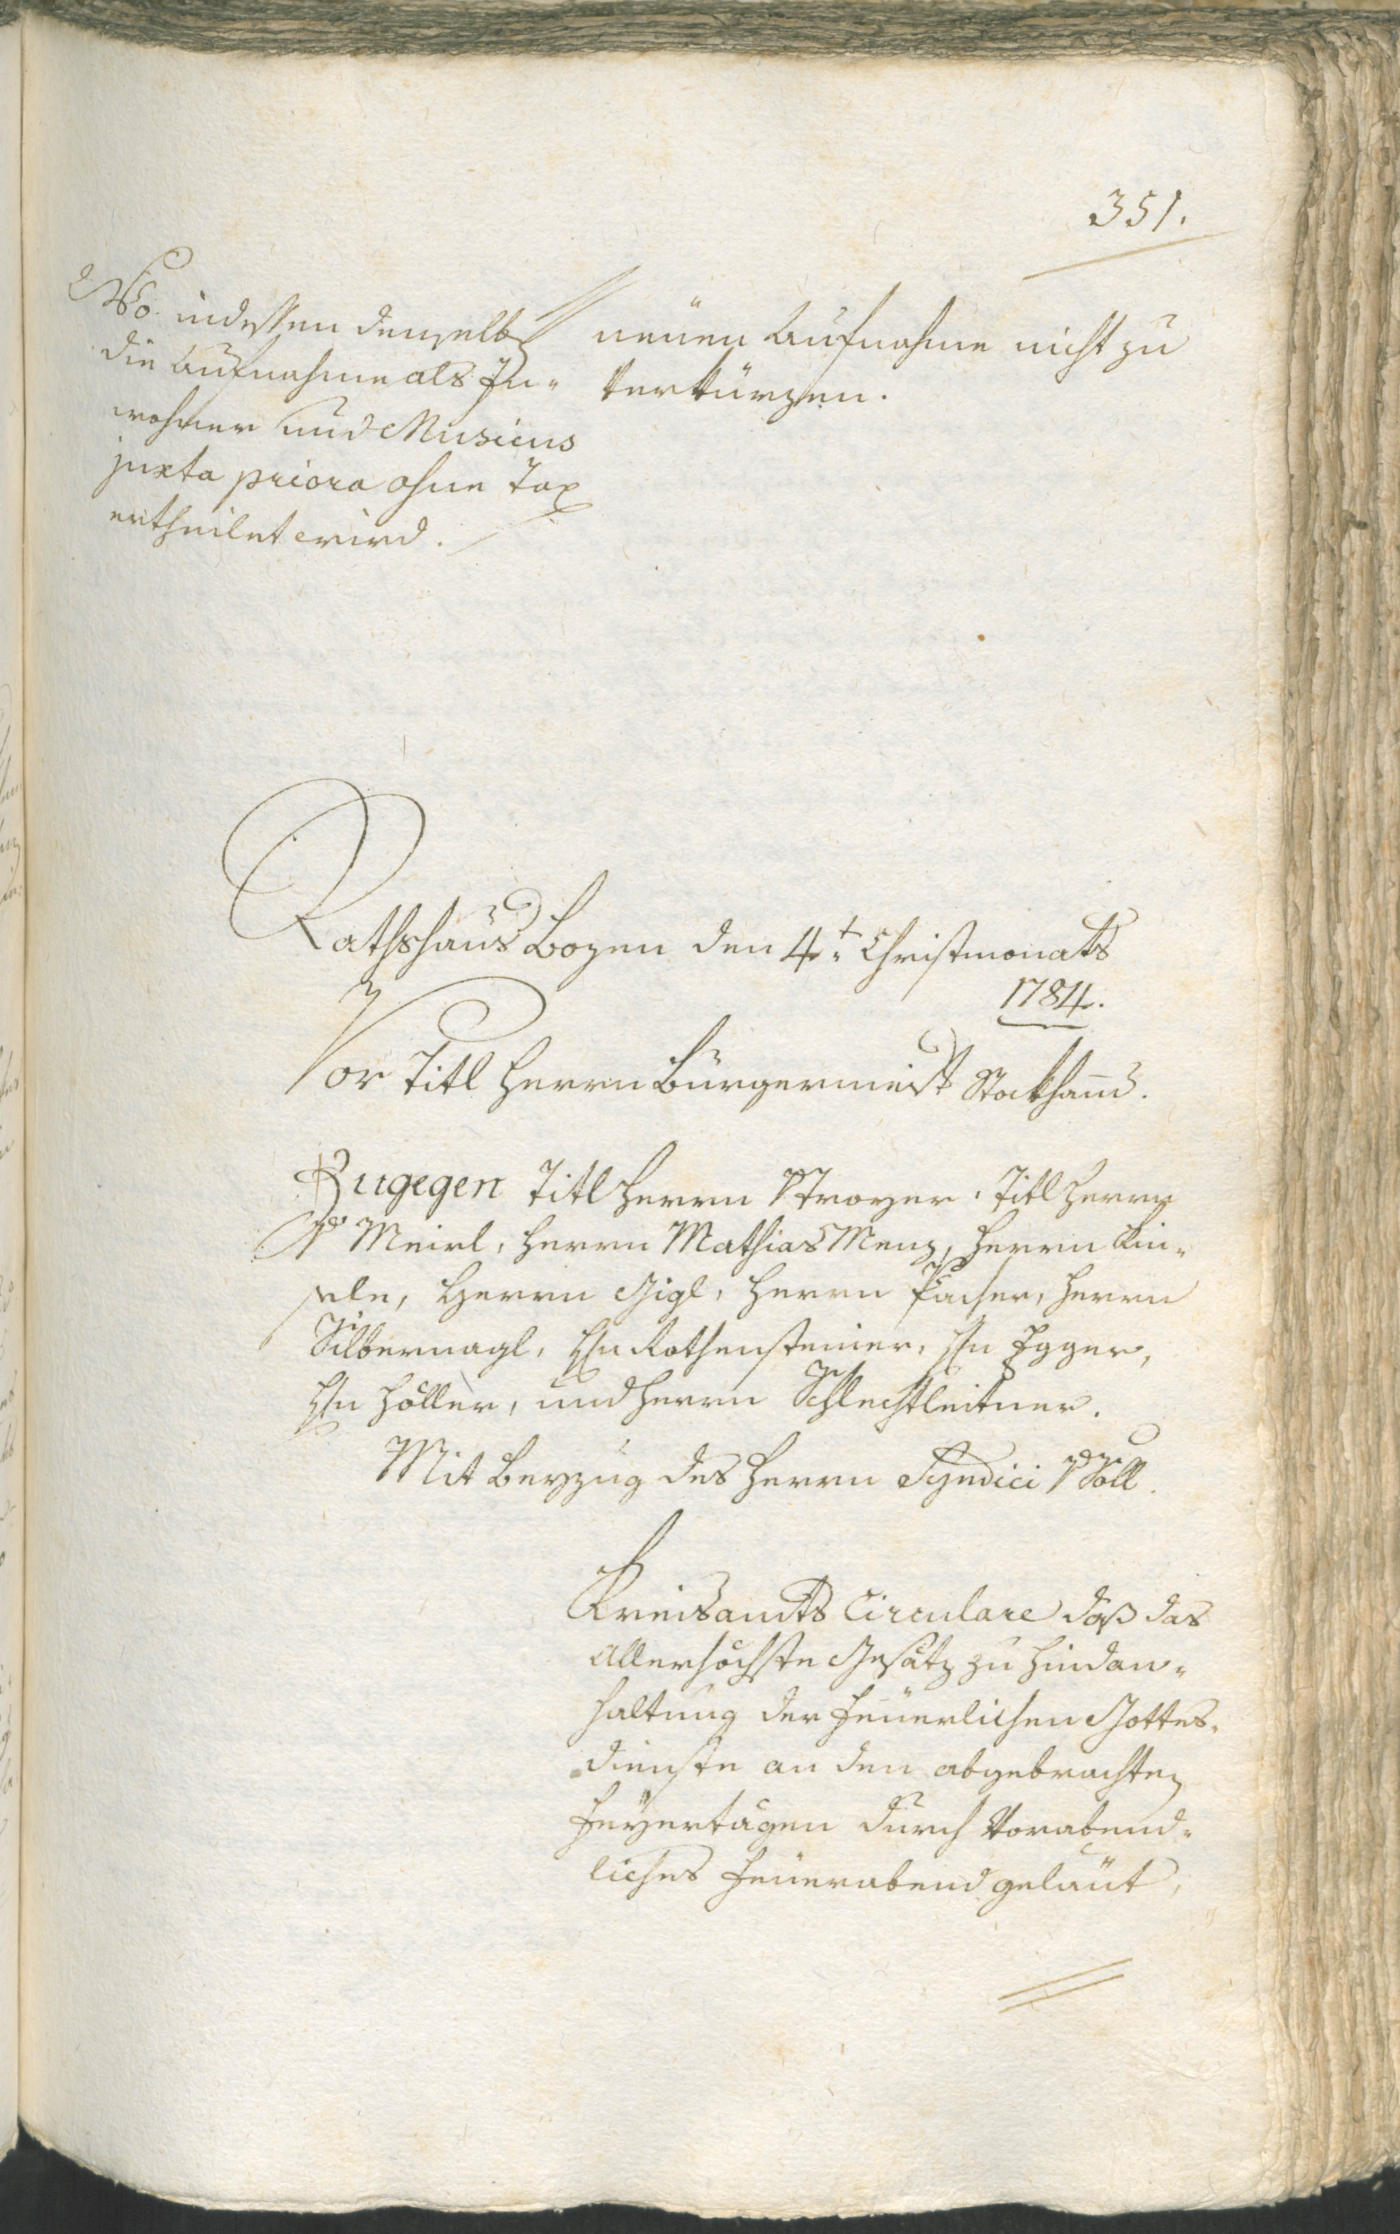 351.
Wo indessen denselb
die Aufnahme als In-
wohner und Musicus
juxta priora ohne Tax
ertheilet wird.
neüen Aufnahme nicht zu
verkürzen.
Rathshaus Bozen den 4t. Christmonats
1784.
Vor Titl Herrn Bürgermeist Stockham̄.
Zugegen Titl Herrn v Troyer, Titl Herrn
Meirl, Herrn Mathias Menz, Herrn Kin-
sele, Herrn Gigl, Herrn Pacher, Herrn
Silbernagl, Hn Rothensteiner, Hn Egger,
Hn Höller, und Herrn Schlechtleitner.
Mit Beyzug des Herrn Syndici
Kreisamts Circulare daß das
allerhöchste Gesätz zu Hindan-
haltung der feuerlichen Gottes-
dienste an den abgebrachten
Feyertägen durch Vorabend-
liches Feuerabend geläüt,